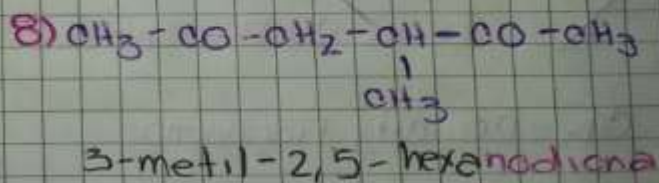 8) CH3-CO-CH2-CH-CO-CH3
|
CH3
3-metil-2,5-hexanodiona